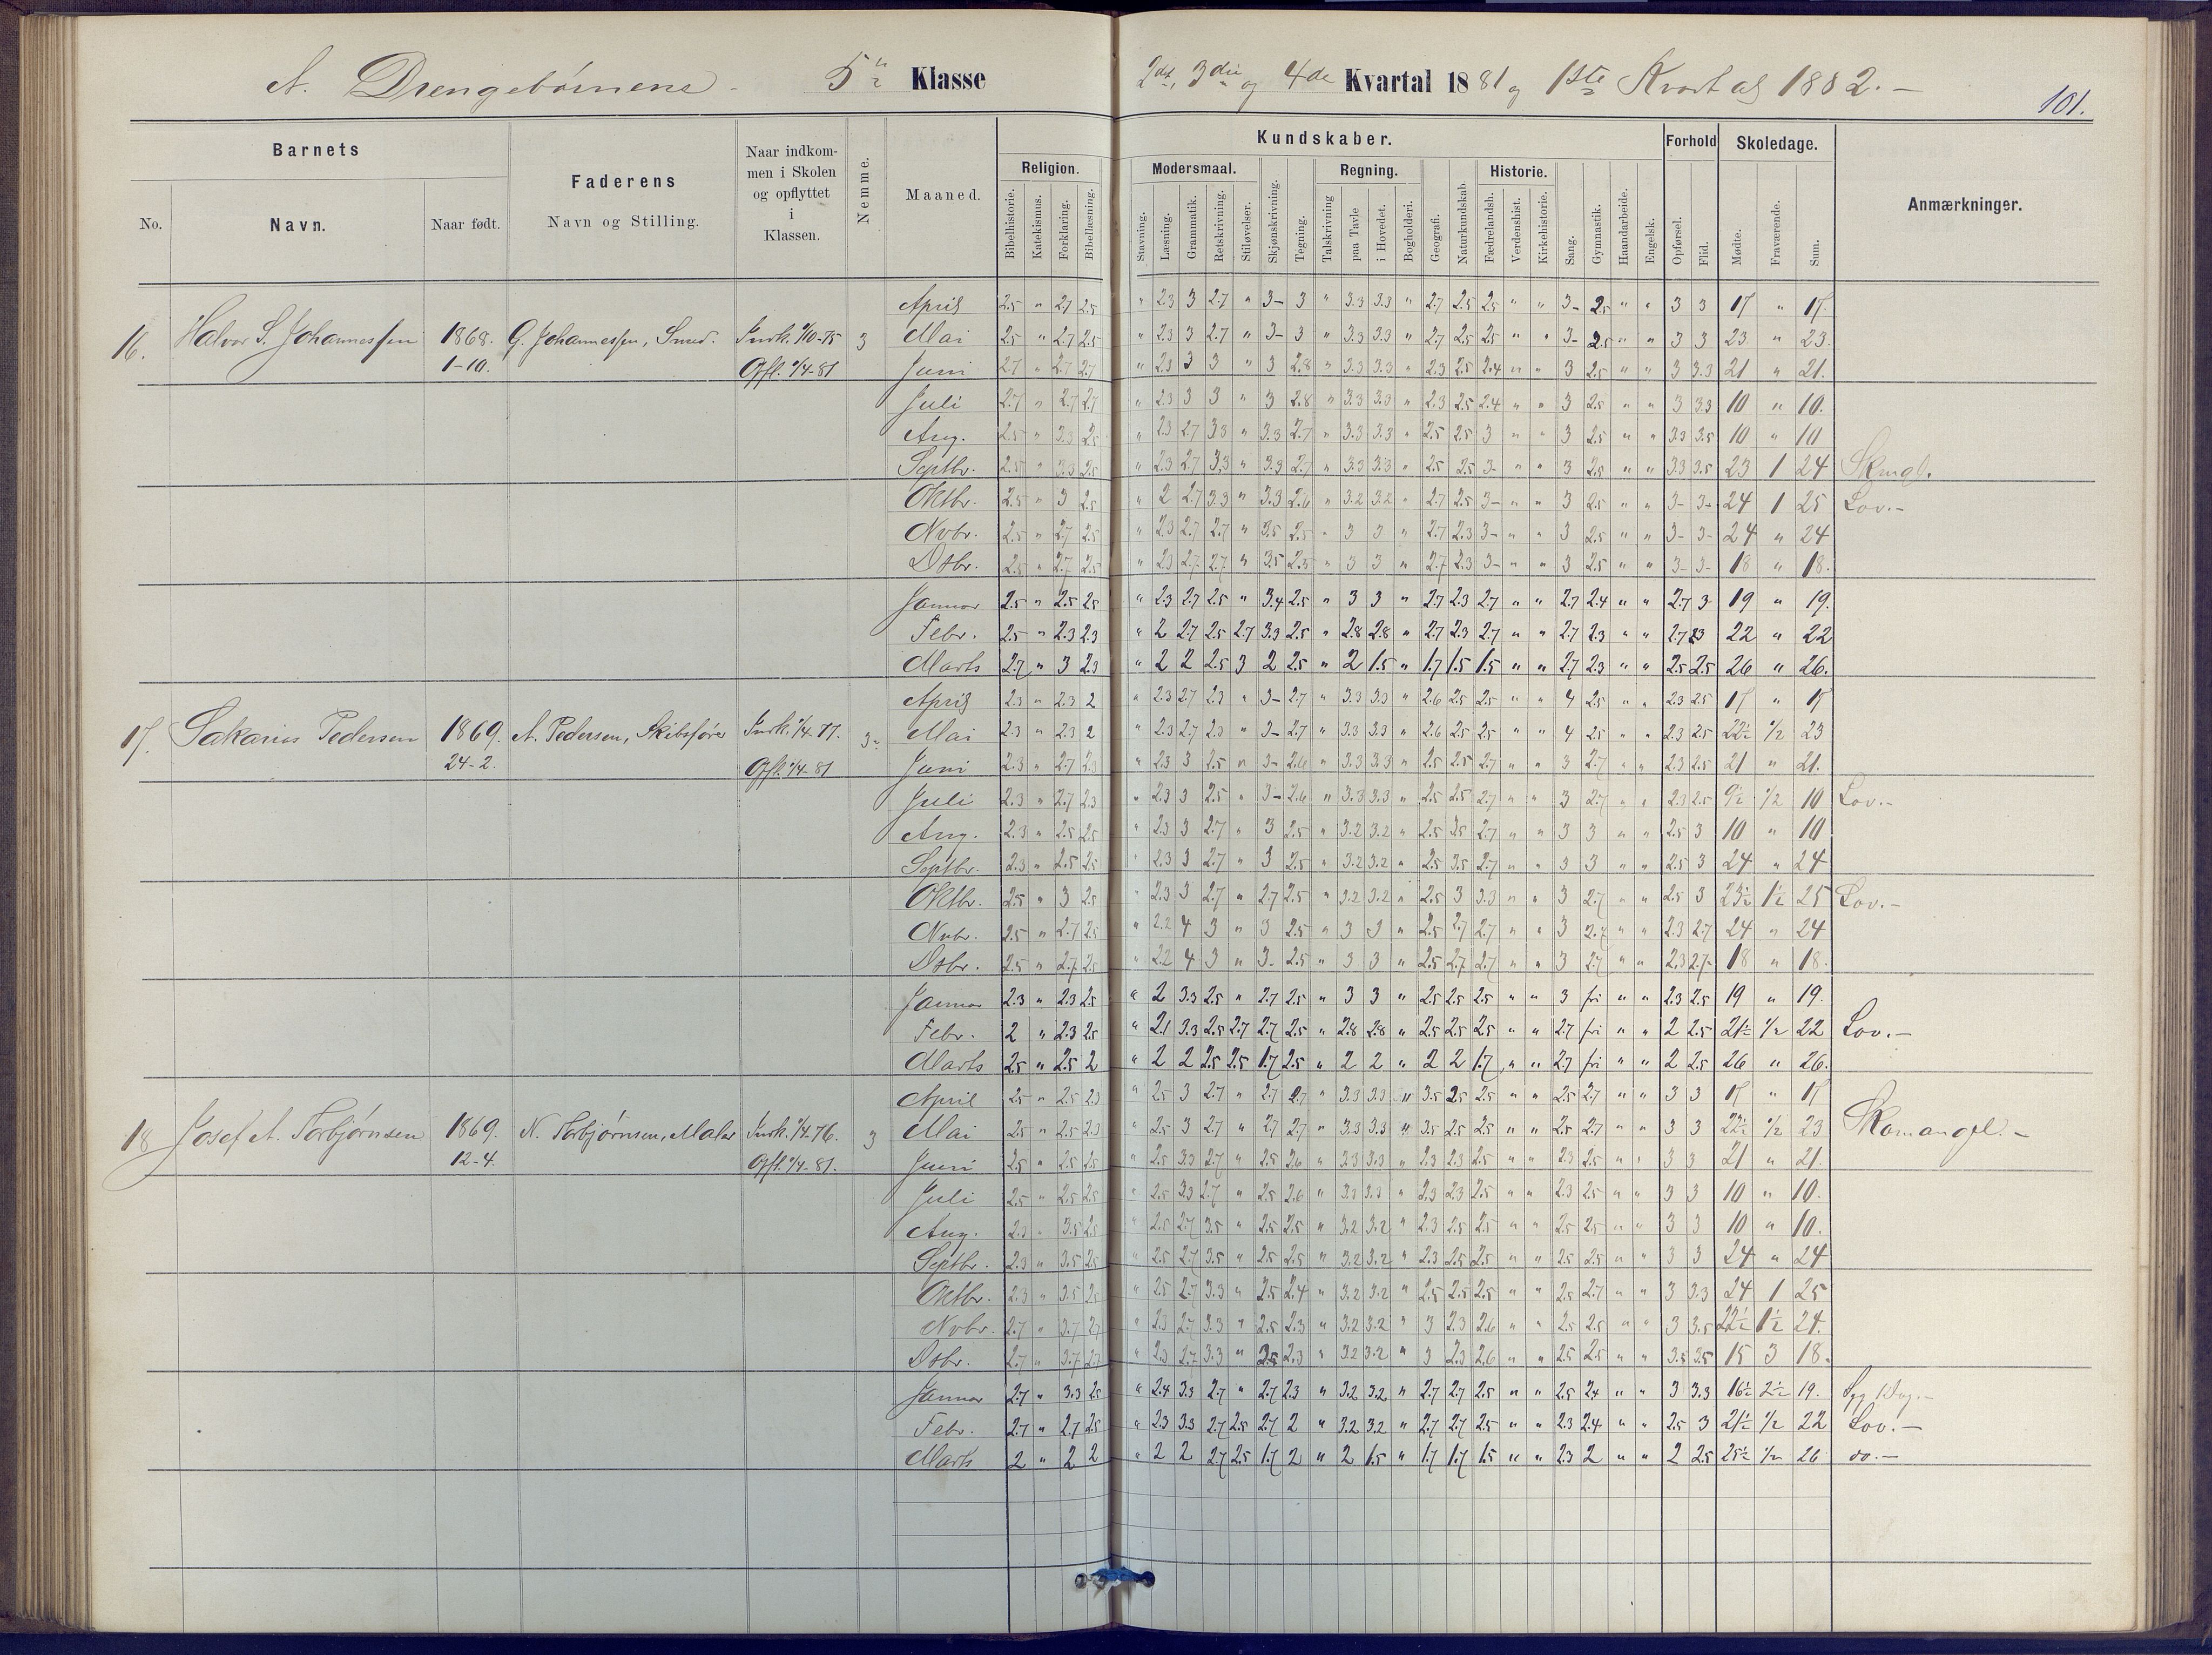 A. Drengebørnens 5te Klasse 2det, 3die og 4de Kvartal 1881 og 1ste Kvartal 1882.
101.
Barnets
Faderens
Navn og Stilling.
Naar indkommen i Skolen og opflyttet i Klassen.
Nemme.
Maaned.
Kundskaber.
Forhold
Skoledage.
Anmærkninger.
No.
Navn.
Naar født.
Religion.
Modersmaal.
Regning.
Historie.
Bibelhistorie.
Katekismus.
Forklaring.
Bibellæsning.
Stavning.
Læsning.
Grammatik.
Retskrivning.
Stiløvelser.
Skjønskrivning.
Tegning.
Talskrivning
paa Tavle
i Hovedet.
Bogholderi.
Geografi.
Naturkundskab.
Fædrelandsh.
Verdenshist.
Kirkehistorie.
Sang.
Gymnastik.
Haandarbeide.
Engelsk.
Opførsel.
Flid.
Mødte.
Fraværende.
Sum.
April 2.5 " 2.7 2.5 " 2.3 3 2.7 " 3- 3 " 3.3 3.3 " 2.7 2.5 2.5 " " 3- 2.5 " " 3 3 17 " 17.
16. Halvor S. Johannessen 1868. G. Johannessen, Smed. Indk. 1/10-75 3 Mai 2.5 " 2.7 2.5 " 2.3 3 2.7 " 3- 3 " 3.3 3.3 " 2.7 2.5 2.5 " " 3- 2.5 " " 3 3 23 " 23.
1-10. Opfl. 1/4-81 Juni 2.7 " 2.7 2.7 " 2.3 3 3 " 3 2.8 " 3.3 3.3 " 2.3 2.5 2.4 " " 3 2.5 " " 3 3.3 21 " 21.
Juli 2.7 " 2.7 2.7 " 2.3 3 3 " 3 2.8 " 3.3 3.3 " 2.3 2.5 2.4 " " 3 2.5 " " 3 3.3 10 " 10.
Aug. 2.5 " 3.3 2.5 " 2.3 2.7 3.3 " 3.3 2.7 " 3.3 3.3 " 2.5 2.5 3 " " 3 2.5 " " 3.3 3.5 10 " 10
Septbr. 2.5 " 3.3 2.5 " 2.3 2.7 3.3 " 3.3 2.7 " 3.3 3.3 " 2.5 2.5 3- " " 3 2.5 " " 3.3 3.5 23 1 24 Skmgl.
Oktbr. 2.5 " 3 2.5 " 2 2.7 3.3 " 3.3 2.6 " 3.2 3.2 " 2.7 2.5 3- " " 3 2.5 " " 3- 3- 24 1 25 Lov.-
Nvbr. 2.5 " 2.7 2.5 " 2.3 2.7 2.7 " 3.5 2.5 " 3 3 " 2.7 2.3 3- " " 3 2.5 " " 3- 3- 24 " 24
Dsbr. 2.5 " 2.7 2.5 " 2.3 2.7 2.7 " 3.5 2.5 " 3 3 " 2.7 2.3 3- " " 3 2.5 " " 3- 3- 18 " 18.
Januar 2.5 " 2.5 2.5 " 2.3 2.7 2.5 " 3.4 2.5 " 3 3 " 2.7 2.3 2.7 " " 2.7 2.4 " " 2.7 3 19 " 19.
Febr. 2.5 " 2.3 2.3 " 2 2.7 2.5 2.7 3.3 2.5 " 2.8 2.8 " 2.7 2.3 2.7 " " 2.7 2.3 " " 2.7 2.3 22 " 22
Marts 2.7 " 3 2.3 " 2 2 2.5 3 2 2.5 " 2 1.5 " 1.7 1.5 1.5 " " 2.7 2.3 " " 2.5 2.5 26 " 26.
April 2.3 " 2.3 2 " 2.3 2.7 2.3 " 3- 2.7 " 3.3 3.3 " 2.6 2.5 2.5 " " 4 2.5 " " 2.3 2.5 17 " 17
17. Sakarias Pedersen 1869. A. Pedersen, Skibsfører Indk. 1/4-77. 3- Mai 2.3 " 2.3 2 " 2.3 2.7 2.3 " 3- 2.7 " 3.3 3.3 " 2.6 2.5 2.5 " " 4 2.5 " " 2.3 2.5 22½ ½ 23
24-2. Opfl. 1/4-81 Juni 2.3 " 2.7 2.3 " 2.3 3 2.5 " 3- 2.6 " 3.3 3.3 " 2.5 2.5 2.7 " " 3 2.7 " " 2.3 2.5 21 " 21.
Juli 2.3 " 2.7 2.3 " 2.3 3 2.5 " 3- 2.6 " 3.3 3.3 " 2.5 2.5 2.7 " " 3 2.7 " " 2.3 2.5 9½ ½ 10 Lov.-
Aug. 2.3 " 2.5 2.5 " 2.3 3 2.7 " 3 2.5 " 3.2 3.2 " 2.5 3.5 2.7 " " 3 3 " " 2.5 3 10 " 10
Septbr. 2.3 " 2.5 2.5 " 2.3 3 2.7 " 3 2.5 " 3.2 3.2 " 2.5 3.5 2.7 " " 3 3 " " 2.5 3 24 " 24
Oktbr. 2.5 " 3 2.5 " 2.3 3 2.7 " 2.7 2.5 " 3.2 3.2 " 2.5 3 3.3 " " 3 2.7 " " 2.5 3 23½ 1½ 25 Lov.-
Nvbr. 2.5 " 2.7 2.5 " 2.2 4 3 " 3 2.5 " 3 3 " 2.5 2.7 2.7 " " 3 2.7 " " 2.3 2.7 24 " 24
Dsbr. 2.5 " 2.7 2.5 " 2.2 4 3 " 3- 2.5 " 3 3 " 2.5 2.7 2.7 " " 3 2.7 " " 2.3 2.7 18 " 18.
Januar 2.3 " 2.3 2.5 " 2 3.3 2.5 " 2.7 2.5 " 3 3 " 2.5 2.5 2.5 " " 3 fri " " 2.3 2.5 19 " 19.
Febr. 2 " 2.3 2.5 " 2.1 3.3 2.5 2.7 2.7 2.5 " 2.8 2.8 " 2.5 2.5 2.5 " " 2.7 fri " " 2 2.5 21½ ½ 22 Lov.-
Marts 2.5 " 2.5 2 " 2 2 2.5 2.5 1.7 2.5 " 2 2 " 2 2 1.7 " " 2.7 fri " " 2 2.5 26 " 26.
April 2.5 " 2.5 2.3 " 2.5 3 2.7 " 2.7 2.7 " 3.3 3.3 " 3.5 2.5 2.5 " " 2.5 2.7 " " 3 3 17 " 17
18 Josef A. Torbjørnsen 1869. N. Torbjørnsen, Maler Indk. 1/4-76. 3 Mai 2.5 " 2.5 2.3 " 2.5 3 2.7 " 2.7 2.7 " 3.3 3.3 " 3.5 2.5 2.5 " " 2.5 2.7 " " 3 3 22½ ½ 23 Skomangel.-
12-4. Opfl. 1/4-81. Juni 2.5 " 2.5 2.5 " 2.5 3.3 2.7 " 2.5 2.6 " 3.3 3.3 " 2.3 2.3 2.5 " " 2.3 2.5 " " 3 3 21 " 21.
Juli 2.5 " 2.5 2.5 " 2.5 3.3 2.7 " 2.5 2.6 " 3.3 3.3 " 2.3 2.3 2.5 " " 2.3 2.5 " " 3 3 10 " 10.
Aug. 2.3 " 3.5 2.5 " 2.5 2.7 3.5 " 2.5 2.5 " 3.2 3.2 " 2.3 2.5 2.5 " " 2.5 2.5 " " 3 3 10 " 10.
Septbr. 2.3 " 3.5 2.5 " 2.5 2.7 3.5 " 2.5 2.5 " 3.2 3.2 " 2.3 2.5 2.5 " " 2.5 2.5 " " 3 3 24 " 24
Oktbr. 2.3 " 3.5 2.5 " 2.5 2.7 3.3 " 2.5 2.4 " 3.2 3.2 " 2.5 2.5 2.5 " " 2.5 2.7 " " 3 3.3 24 1 25
Nvbr. 2.7 " 3.7 2.7 " 2.3 2.7 3.3 " 2.5 2.3 " 3.2 3.2 " 3 2.3 2.6 " " 2.5 2.5 " " 3 3.5 22½ 1½ 24.
Dsbr. 2.7 " 3.7 2.7 " 2.3 2.7 3.3 " 3.5 2.3 " 3.2 3.2 " 3 2.3 2.6 " " 2.5 2.5 " " 3.3 3.5 15 3 18.
Januar 2.7 " 3.3 2.5 " 2.4 3.3 2.7 " 2.7 2.3 " 3.2 3.2 " 2.7 2.7 2.5 " " 2.5 2.4 " " 3 3.3 16½ 2½ 19. Syg 1 Dag.-
Febr. 2.7 " 2.7 2.5 " 2.3 3.3 2.7 2.5 2.7 2 " 3.2 3.2 " 2.7 2.7 2.5 " " 2.3 2.4 " " 2.5 3 21½ ½ 22 Lov.-
Marts 2 " 2 2 " 2 2 2.7 2.5 1.7 2 " 2 1.5 " 1.7 1.7 1.5 " " 2.3 2 " " 2 2.5 25½ ½ 26 do.-